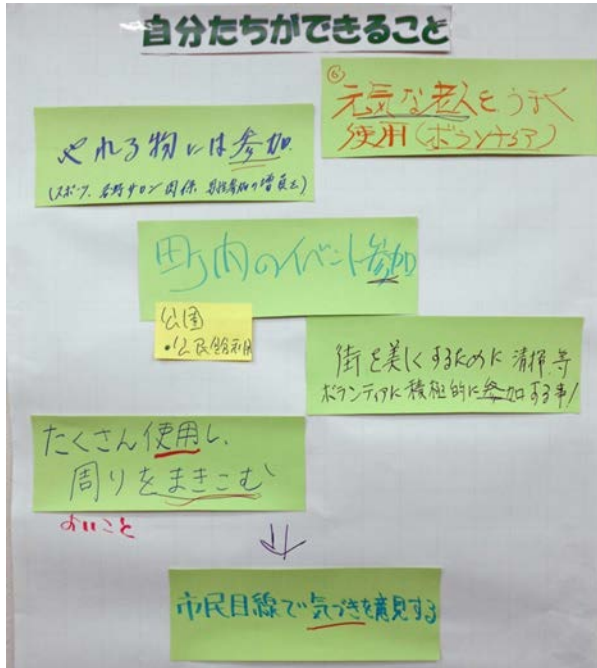 自分たちができること
⑥
元気な老人をうまく
使用(ボランティア)
やれる物には参加
(スポーツ、各町サロン関係
町内のイベント参加
公園
・公民館利用
街を美しくするために清掃等
ボランティアに積極的に参加する事!
たくさん使用し、
周りをまきこむ
よいこと
市民目線で気づきを意見する